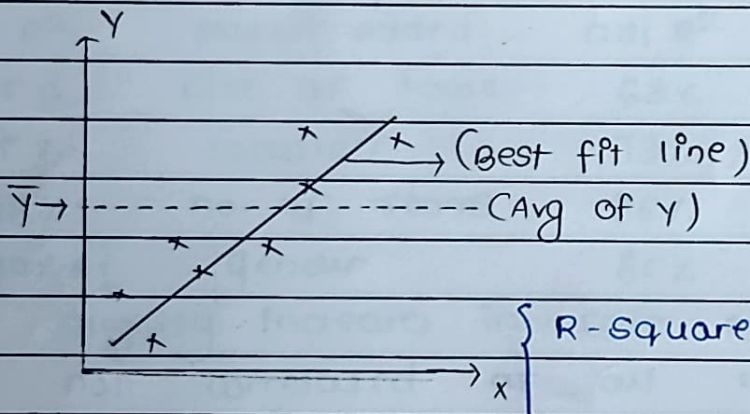 Y
→ (Best fit line)
Y̅ → ----- (Avg of Y)
{ R-Square
x